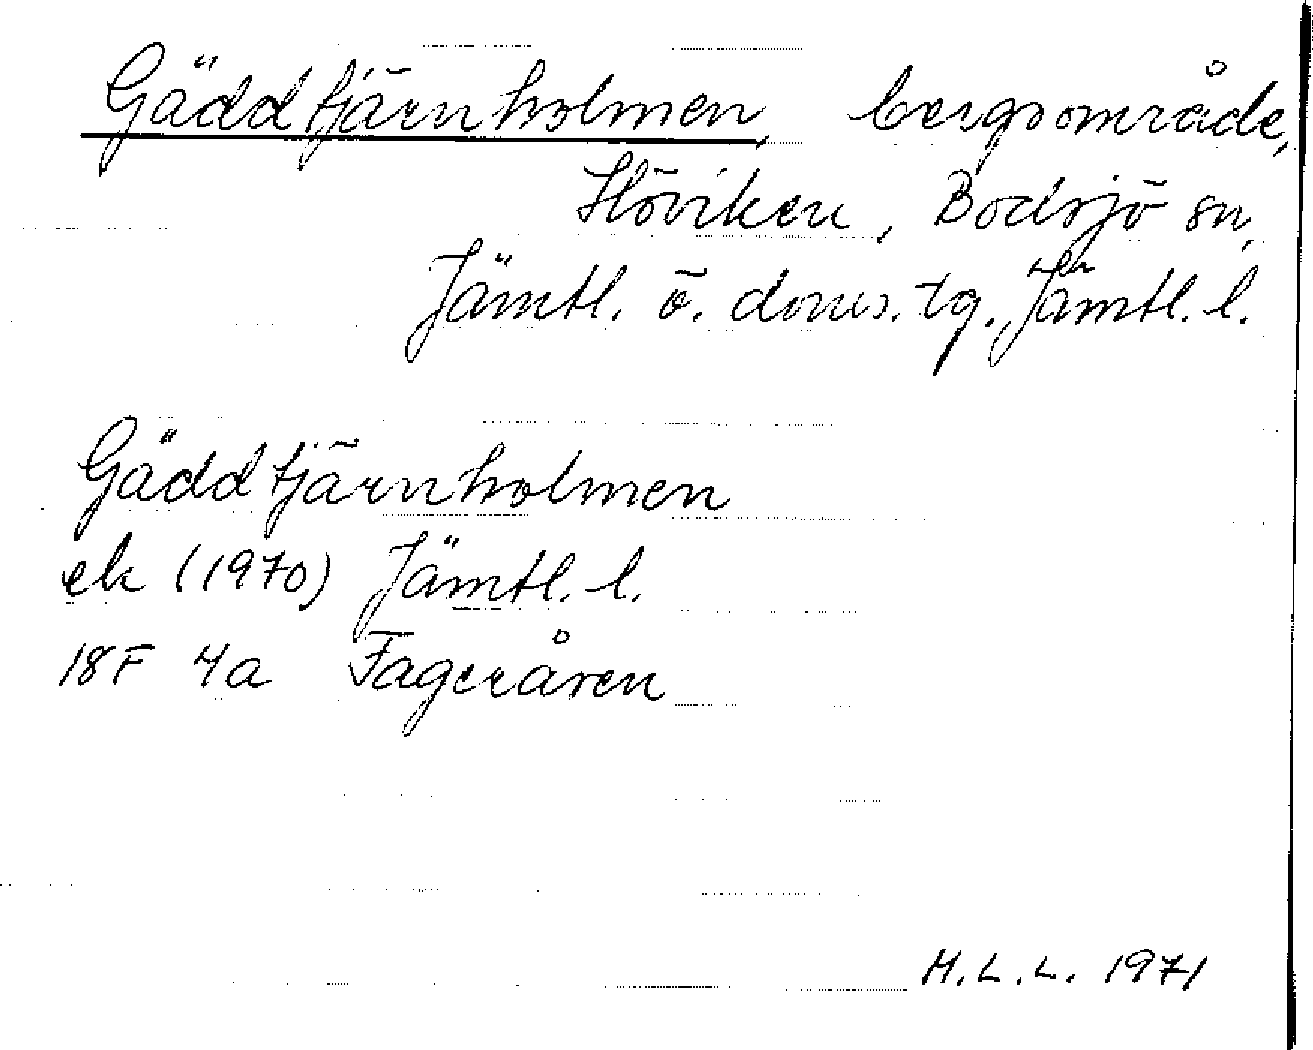 Gäddtjärnholmen, bergsområde,
Höviken, Bodsjö sn,
Jämtl. ö. doms. tg. Jämtl. l.
Gäddtjärnholmen
ek (1970) Jämtl. l.
18F 4a Fageråsen
H.L.L. 1971